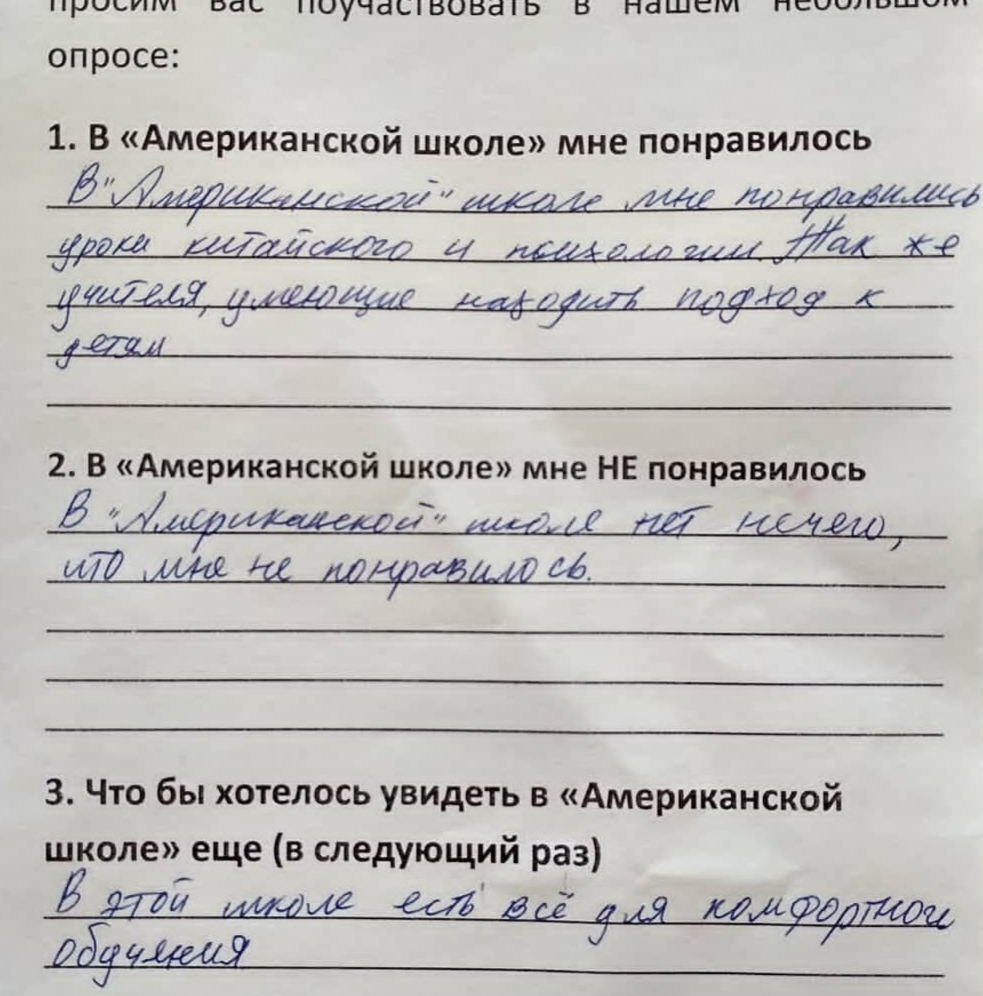 просим вас поучаствовать в нашем небольшом
опросе:
1. В «Американской школе» мне понравилось
В "Американской" школе мне понравились
уроки китайского и психологии. Так же
учителя, умеющие находить подход к
детям
2. В «Американской школе» мне НЕ понравилось
В "Американской" школе нет нечего,
что мне не понравилось.
3. Что бы хотелось увидеть в «Американской
школе» еще (в следующий раз)
В этой школе есть всё для комфортного
обучения